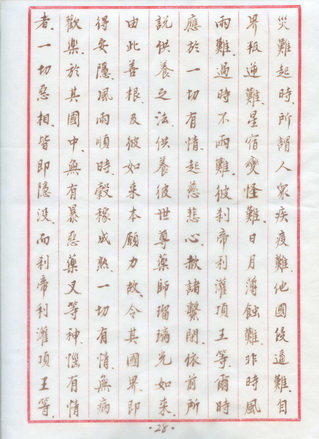 災難起時所謂人衆疾疫難他國侵逼難自
界叛逆難星宿變怪難日月薄蝕難非時風
雨難過時不雨難彼剎帝利灌頂王等爾時
應於一切有情起慈悲心赦諸繫閉依前所
說供養之法供養彼世尊藥師瑠璃光如來
由此善根及彼如來本願力故令其國界即
得安隱風雨順時穀稼成熟一切有情無病
歡樂於其國中無有暴惡藥叉等神惱有情
者一切惡相皆即隱沒而剎帝利灌頂王等
·28·